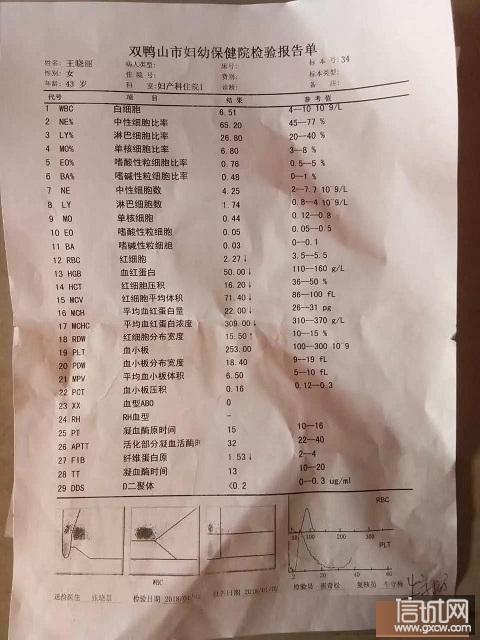 双鸭山市妇幼保健院检验报告单
姓名: 王晓丽 病人类型: 床号: 标本号: 34
性别: 女 住院号: 费别: 标本类型:
年龄: 43 岁 科室: 妇产科住院1 诊断: 备注:
代号 项目 结果 参考值
1 WBC 白细胞 6.51 4--10 10^9/L
2 NE% 中性细胞比率 65.20 45--77 %
3 LY% 淋巴细胞比率 26.80 20--40 %
4 MO% 单核细胞比率 6.80 3--8 %
5 EO% 嗜酸性粒细胞比率 0.76 0.5--5 %
6 BA% 嗜碱性粒细胞比率 0.48 0--1 %
7 NE 中性细胞数 4.25 2--7.7 10^9/L
8 LY 淋巴细胞数 1.74 0.8--4 10^9/L
9 MO 单核细胞 0.44 0.12--0.8
10 EO 嗜酸性粒细胞 0.05 0.05--0.5
11 BA 嗜碱性粒细胞 0.03 0--0.1
12 RBC 红细胞 2.27↓ 3.5--5.5
13 HGB 血红蛋白 50.00↓ 110--160 g/L
14 HCT 红细胞压积 16.20↓ 36--50 %
15 MCV 红细胞平均体积 71.40↓ 86--100 fL
16 MCH 平均血红蛋白量 22.00↓ 26--31 pg
17 MCHC 平均血红蛋白浓度 309.00↓ 310--370 g/L
18 RDW 红细胞分布宽度 15.50↑ 10--15 %
19 PLT 血小板 253.00 100--300 10^9
20 PDW 血小板分布宽度 18.40 9--19 fL
21 MPV 平均血小板体积 6.50 5--10 fL
22 PCT 血小板压积 0.16 0.12--0.3
23 XX 血型ABO 0
24 RH RH血型 -
25 PT 凝血酶原时间 15 10--16
26 APTT 活化部分凝血活酶时 32 22--40
27 FIB 纤维蛋白原 1.53↓ 2--4
28 TT 凝血酶时间 13 10--20
29 DDS D二聚体 <0.2 0--0.3 ug/ml
RBC
PLT
2 20 40 60
WBC
送检医生 检验日期 2018/01/02 报告日期 2018/01/02 检验员 复核员
信诚网
www.gxcw.com